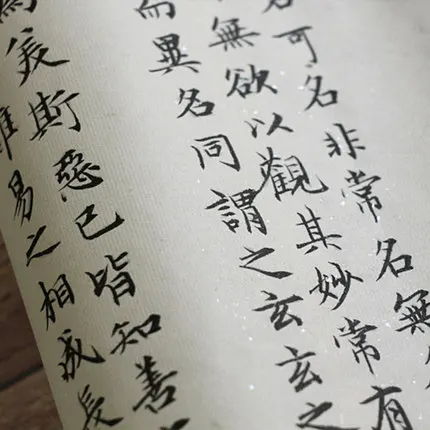 名可名非常名無
無欲以觀其妙常有
而異名同謂之玄玄之
為美斯惡已皆知善
難易之相成長